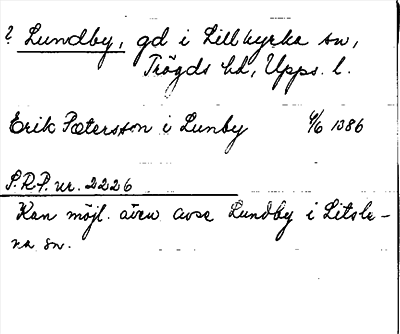 ? Lundby, gd i Lillkyrka sn,
Trögds hd, Upps. l.
Erik Pætersson i Lunby 4/6 1386
S.R.P. nr. 2226
Kan möjl. även avse Lundby i Litsle-
na sn.